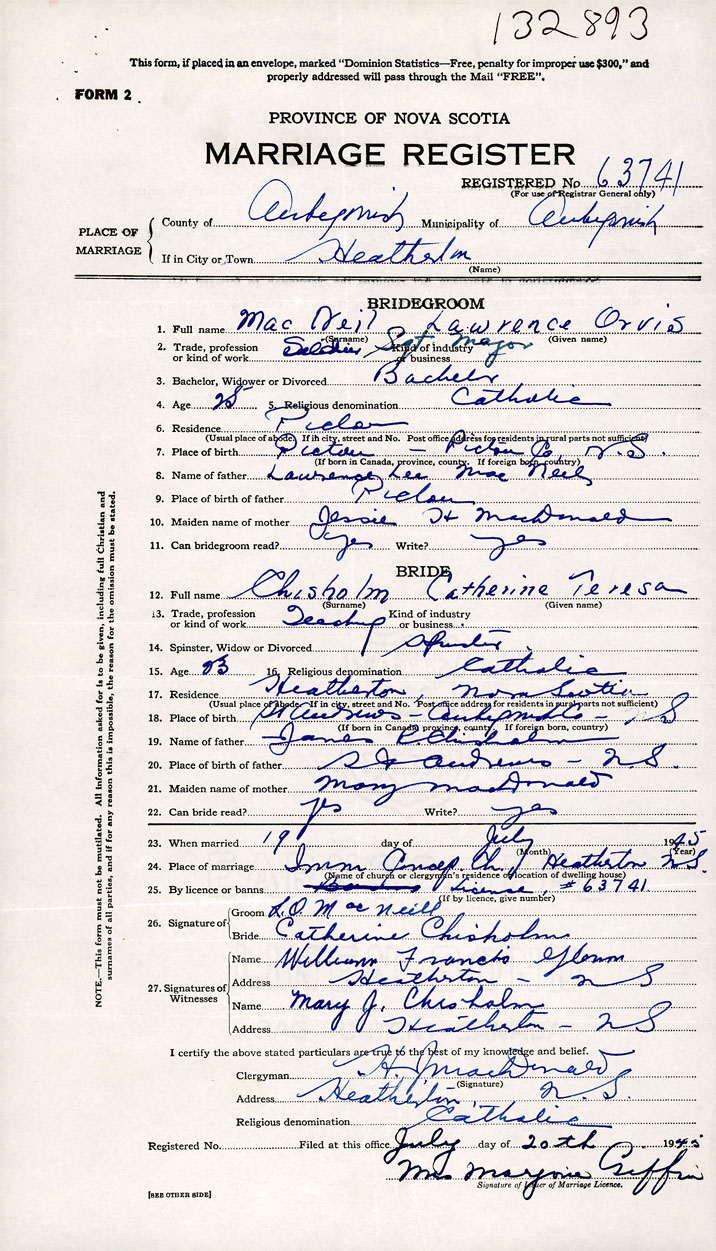 132893
This form, if placed in an envelope, marked "Dominion Statistics—Free, penalty for improper use $300," and
properly addressed will pass through the Mail "FREE".
FORM 2
PROVINCE OF NOVA SCOTIA
MARRIAGE REGISTER
REGISTERED No. 63741
(For use of Registrar General only)
PLACE OF MARRIAGE
County of Antigonish Municipality of Antigonish
If in City or Town Heatherton
(Name)
BRIDEGROOM
1. Full name Mac Neil Lawrence Orvis
(Surname) (Given name)
2. Trade, profession or kind of work Soldier Kind of industry or business Sgt Major
3. Bachelor, Widower or Divorced Bachelor
4. Age 25 5. Religious denomination Catholic
6. Residence Pictou
(Usual place of abode. If in city, street and No. Post office address for residents in rural parts not sufficient)
7. Place of birth Pictou - Pictou Co, N.S.
(If born in Canada, province, county. If foreign born, country)
8. Name of father Lawrence Lee Mac Neil
9. Place of birth of father Pictou
10. Maiden name of mother Jessie H MacDonald
11. Can bridegroom read? yes Write? yes
BRIDE
12. Full name Chisholm Catherine Teresa
(Surname) (Given name)
13. Trade, profession or kind of work Teaching Kind of industry or business
14. Spinster, Widow or Divorced Spinster
15. Age 23 16. Religious denomination Catholic
17. Residence Heatherton, Nova Scotia
(Usual place of abode. If in city, street and No. Post office address for residents in rural parts not sufficient)
18. Place of birth St Andrews - Antigonish Co - N.S
(If born in Canada, province, county. If foreign born, country)
19. Name of father James Chisholm
20. Place of birth of father St Andrews - N.S.
21. Maiden name of mother Mary MacDonald
22. Can bride read? yes Write? yes
23. When married 19 day of July 1945
(Month) (Year)
24. Place of marriage Imm. Concep. Ch., Heatherton N.S.
(Name of church or clergyman's residence or location of dwelling house)
25. By licence or banns License, #63741
(If by licence, give number)
26. Signature of
Groom L.O. MacNeill
Bride Catherine Chisholm
27. Signatures of Witnesses
Name William Francis Glenn
Address Heatherton - N S
Name Mary J. Chisholm
Address Heatherton - N S
I certify the above stated particulars are true to the best of my knowledge and belief.
Clergyman H. J. MacDonald
(Signature)
Address Heatherton, N.S.
Religious denomination Catholic
Registered No. Filed at this office July day of 20th 1945
Mrs Marjorie Giffin
Signature of Issuer of Marriage Licence.
[SEE OTHER SIDE]
NOTE.—This form must not be mutilated. All information asked for is to be given, including full Christian and
surnames of all parties, and if for any reason this is impossible, the reason for the omission must be stated.